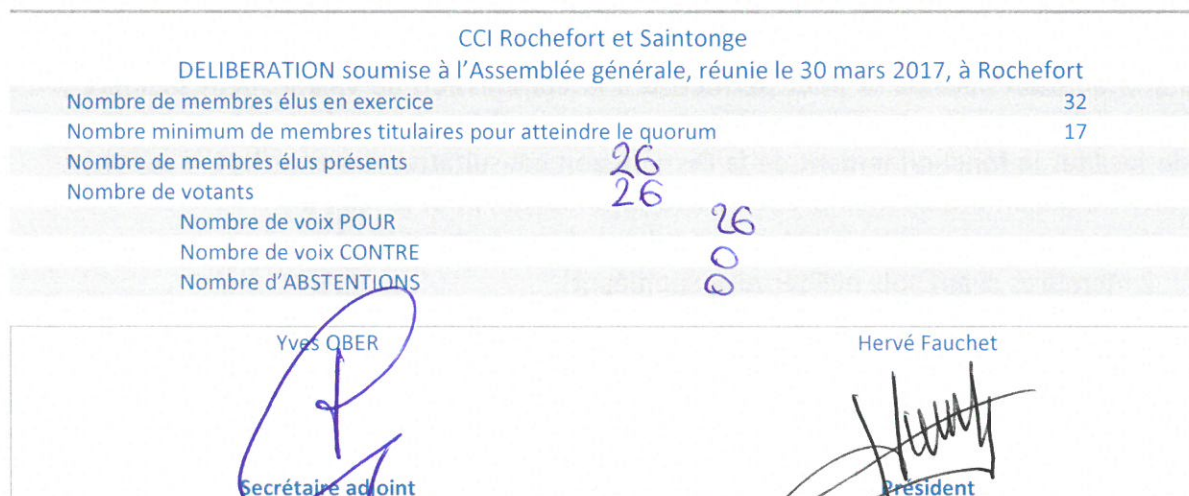 CCI Rochefort et Saintonge
DELIBERATION soumise à l'Assemblée générale, réunie le 30 mars 2017, à Rochefort
Nombre de membres élus en exercice 32
Nombre minimum de membres titulaires pour atteindre le quorum 17
Nombre de membres élus présents 26
Nombre de votants 26
Nombre de voix POUR 26
Nombre de voix CONTRE 0
Nombre d'ABSTENTIONS 0
Yves OBER Hervé Fauchet
Secrétaire adjoint Président